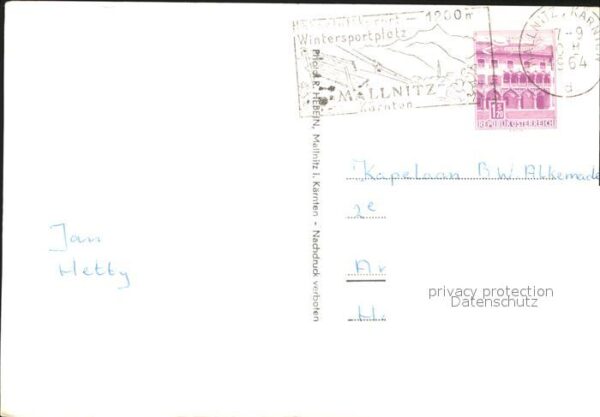 Höhenluftkurort - 1200 m
Wintersportplatz
MALLNITZ
Kärnten
MALLNITZ, KÄRNTEN
7-9
1964
d
REPUBLIK ÖSTERREICH
Photo R. HEBEIN, Mallnitz i. Kärnten - Nachdruck verboten
Kapelaan B W Alkemade
2e
Ar
H.
Jan
Hetty
privacy protection
Datenschutz